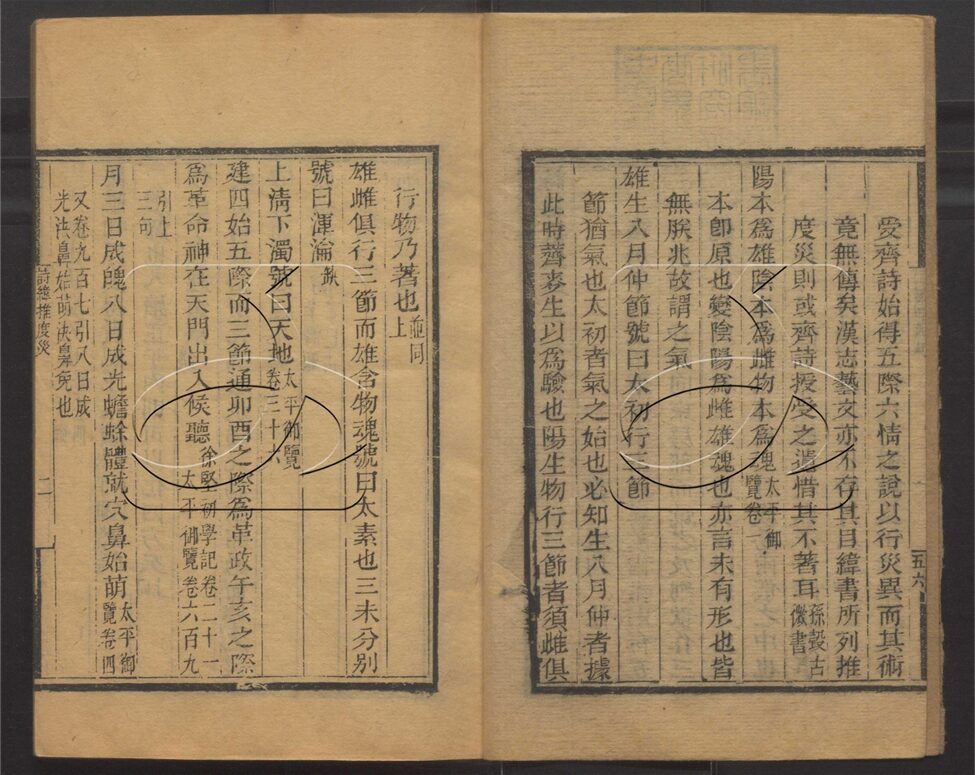 愛齊詩始得五際六情之說以行災異而其術
竟無傳矣漢志藝文亦不存其目緯書所列推
度災則或齊詩授受之遺惜其不著耳孫瑴古微書
陽本爲雄陰本爲雌物本爲魂太平御覽卷一
本卽原也變陰陽爲雌雄魂也亦言未有形也皆
無朕兆故謂之氣
雄生八月仲節號曰太初行三節
節猶氣也太初者氣之始也必知生八月仲者據
此時薺麥生以爲驗也陽生物行三節者須雌俱
五六
行物乃著也並同上
雄雌俱行三節而雄含物魂號曰太素也三未分別
號曰渾淪
上淸下濁號曰天地太平御覽卷三十六
建四始五際而三節通卯酉之際爲革政午亥之際
爲革命神在天門出入候聽徐堅初學記卷二十一太平御覽卷六百九
引上三句
月三日成魄八日成光蟾蜍體就穴鼻始萌太平御覽卷四
又卷九百七引八日成光決鼻始萌決鼻兔也
詩緯推度災
二